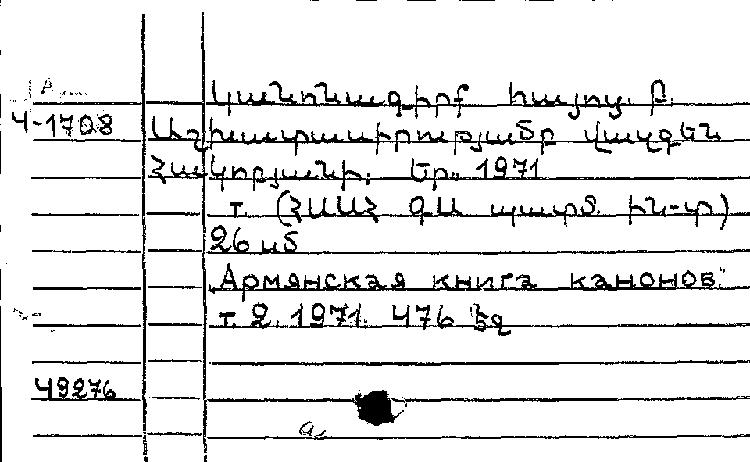 Կանոնագիրք հայոց. Բ.
Ч-1708 Աշխատասիրությամբ Վազգեն
Հակոբյանի. Եր., 1971
т. (ՀՍՍՀ ԳԱ պատմ. ին-տ)
26 սմ
"Армянская книга канонов."
т. 2. 1971. 476 էջ
49276